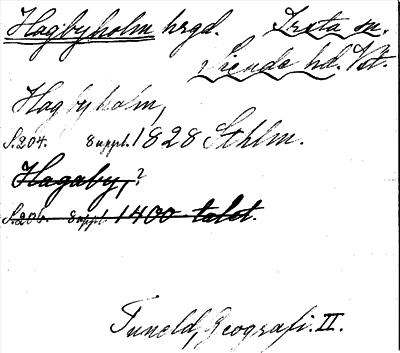 Hagbyholm hrgd. Irsta sn.
Siende hd. Vst.
Hagbyholm,
S. 204. Suppl. 1828 Sthlm.
Hagaby, ?
S. 206. Suppl. 1400-talet.
Tuneld, Geografi. II.